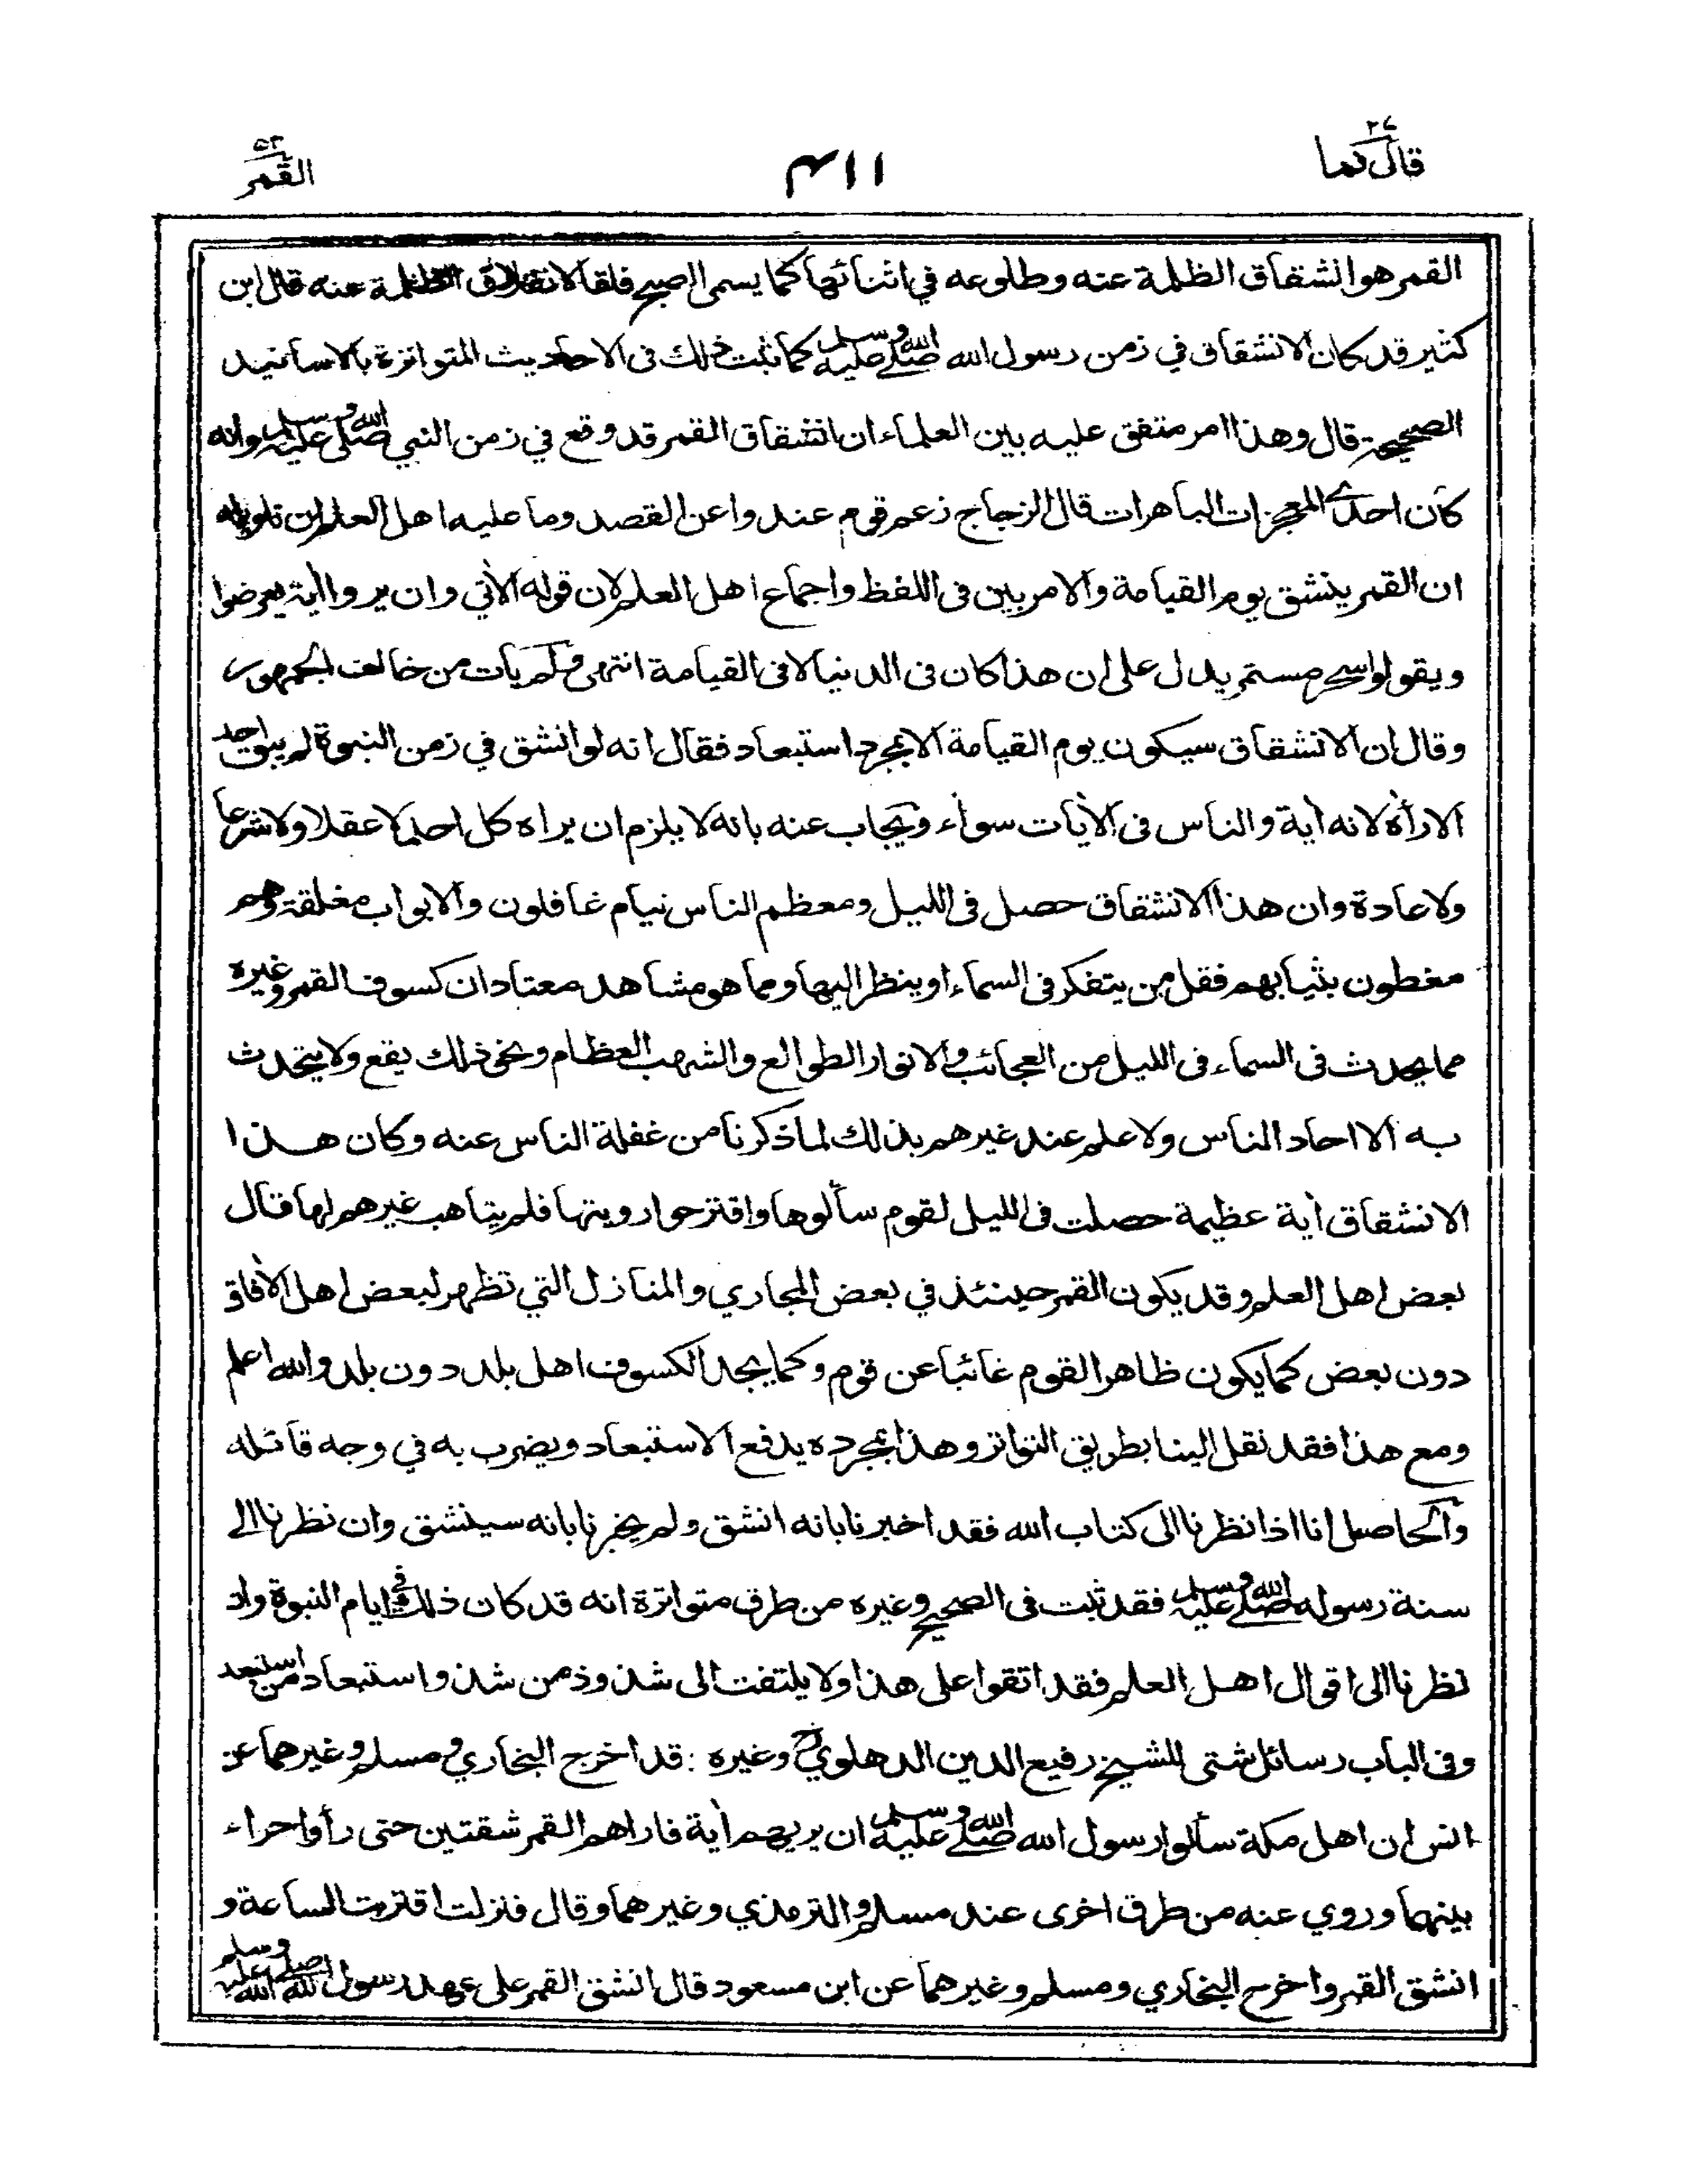 قال فما ٢٧
١١٣
القمر ٥٣
القمر هو انشقاق الظلمة عنه وطلوعه في اثنائها كما يسمى الصبح فلقا لانفلاق الظلمة عنه قال ابن
كثير قد كان الانشقاق في زمن رسول الله صلى الله عليه وسلم كما ثبت ذلك فى الاحاديث المتواترة بالاسانيد
الصحيحة قال وهذا امر متفق عليه بين العلماء ان انشقاق القمر قد وقع في زمن النبي صلى الله عليه وسلم وانه
كان احدى المعجزات الباهرات قال الزجاج زعم قوم عندوا عن القصد وما عليه اهل العلم ان تاويله
ان القمر ينشق يوم القيامة والامر بين فى اللفظ واجماع اهل العلم لان قوله الأتي وان يروا أية يعرضوا
ويقولوا سحر مستمر يدل على ان هذا كان فى الدنيا لا فى القيامة انتهى ولم يات من خالف الجمهور
وقال ان الانشقاق سيكون يوم القيامة الا بمجرد استبعاد فقال انه لو انشق في زمن النبوة لم يبق احد
الا رأه لانه أية والناس فى الأيات سواء ويجاب عنه بانه لا يلزم ان يراه كل احد لا عقلا ولا شرعا
ولا عادة وان هذا الانشقاق حصل فى الليل ومعظم الناس نيام غافلون والابواب مغلقة وهم
مغطون بثيابهم فقل من يتفكر فى السماء او ينظر اليها ومما هو مشاهد معتاد ان كسوف القمر وغيره
مما يحدث فى السماء فى الليل من العجائب والانوار الطوالع والشهب العظام ونحو ذلك يقع ولا يتحدث
به الا احاد الناس ولا علم عند غيرهم بذلك لما ذكرنا من غفلة الناس عنه وكان هذا
الانشقاق أية عظيمة حصلت فى الليل لقوم سألوها واقترحوا رويتها فلم يتاهب غيرهم لها قال
بعض اهل العلم وقد يكون القمر حينئذ في بعض المجاري والمنازل التي تظهر لبعض اهل الأفاق
دون بعض كما يكون ظاهرا لقوم غائبا عن قوم وكما يجد الكسوف اهل بلد دون بلد والله اعلم
ومع هذا فقد نقل الينا بطريق التواتر وهذا بمجرده يدفع الاستبعاد ويضرب به في وجه قائله
والحاصل انا اذا نظرنا الى كتاب الله فقد اخبرنا بانه انشق ولم يخبرنا بانه سينشق وان نظرنا الى
سنة رسوله صلى الله عليه وسلم فقد ثبت فى الصحيح وغيره من طرق متواترة انه قد كان ذلك فى ايام النبوة واذ
نظرنا الى اقوال اهل العلم فقد اتقوا على هذا ولا يلتفت الى شذوذ من شذ واستبعاد من استبعد
وفى الباب رسائل شتى للشيخ رفيع الدين الدهلوي رح وغيره : قد اخرج البخاري ومسلم وغيرهما عن
انس ان اهل مكة سألوا رسول الله صلى الله عليه وسلم ان يريهم أية فاراهم القمر شقتين حتى رأوا حراء
بينهما وروي عنه من طرق اخرى عند مسلم والترمذي وغيرهما وقال فنزلت اقتربت الساعة و
انشق القمر واخرج البخاري ومسلم وغيرهما عن ابن مسعود قال انشق القمر على عهد رسول الله صلى الله عليه وسلم